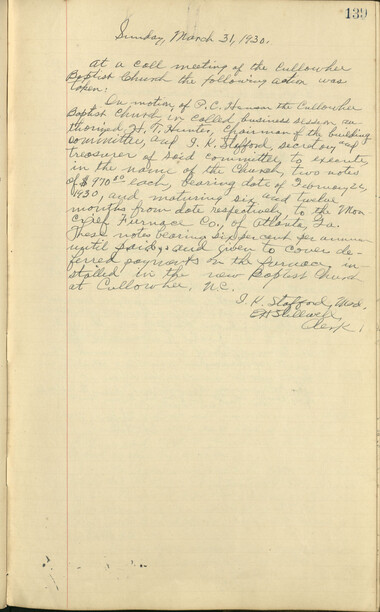 139
Sunday, March 31, 1930.
At a call meeting of the Cullowhee
Baptist Church the following action was
taken:
On motion of P.C. Henson the Cullowhee
Baptist Church in called business session au-
thorized H. T. Hunter, chairman of the building
committee, and I. K. Stafford, secretary and
treasurer of said committee, to execute
in the name of the Church, two notes
of $970.50 each, bearing date of February 26,
1930, and maturing six and twelve
months from date respectively, to the Mon-
crief Furnace Co., of Atlanta, Ga.
These notes bearing six per cent per annum
until paid, and given to cover de-
ferred payments on the furnace in-
stalled in the new Baptist Church
at Cullowhee, N.C.
I. K. Stafford, Mod.
E.H. Stillwell,
Clerk.